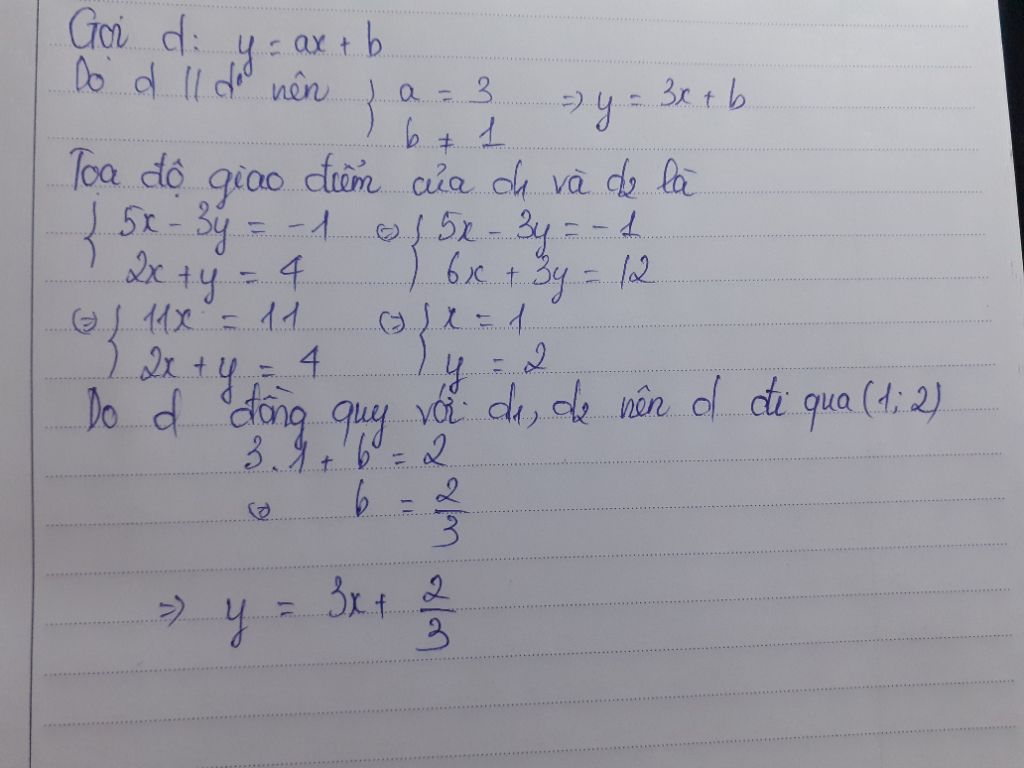 Gọi d: y = ax + b
Do d // d' nên { a = 3 => y = 3x + b
b ≠ 1
Tọa độ giao điểm của d1 và d2 là
{ 5x - 3y = -1 <=> { 5x - 3y = -1
2x + y = 4 6x + 3y = 12
<=> { 11x = 11 <=> { x = 1
2x + y = 4 y = 2
Do d đồng quy với d1, d2 nên d đi qua (1; 2)
3.1 + b = 2
<=> b = 2/3
=> y = 3x + 2/3